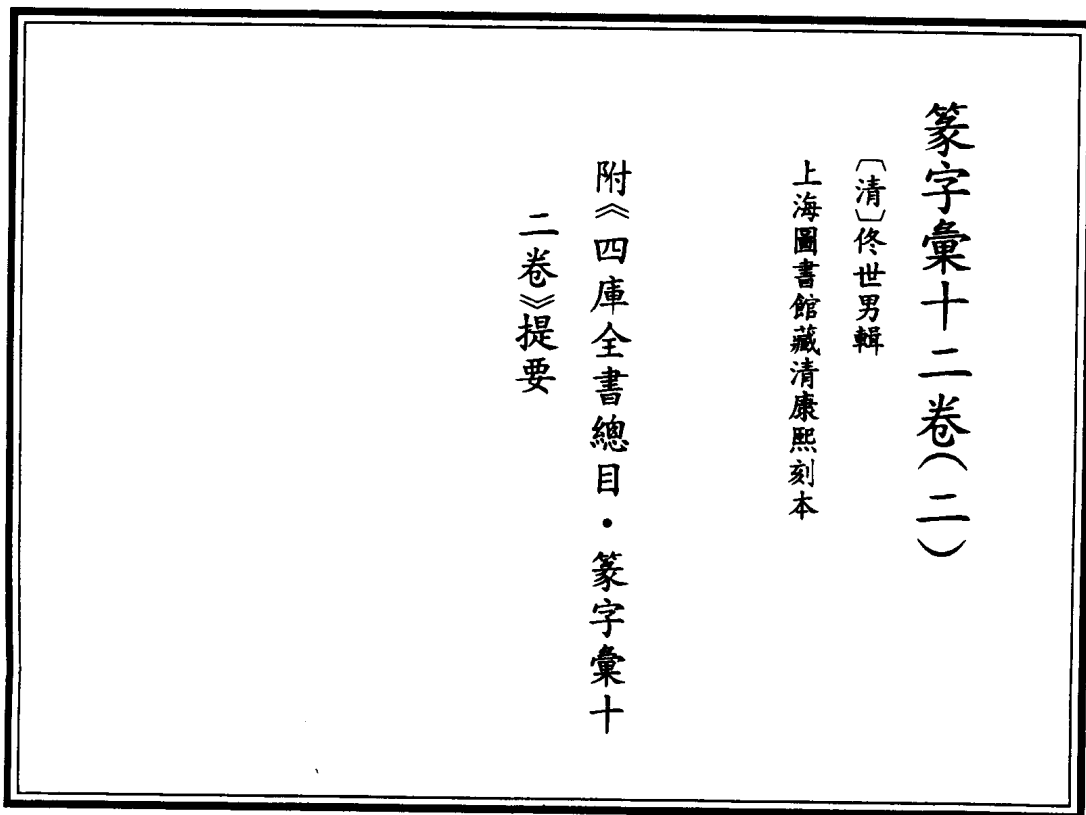 篆字彙十二卷（二）
〔清〕佟世男輯
上海圖書館藏清康熙刻本
附《四庫全書總目·篆字彙十
二卷》提要